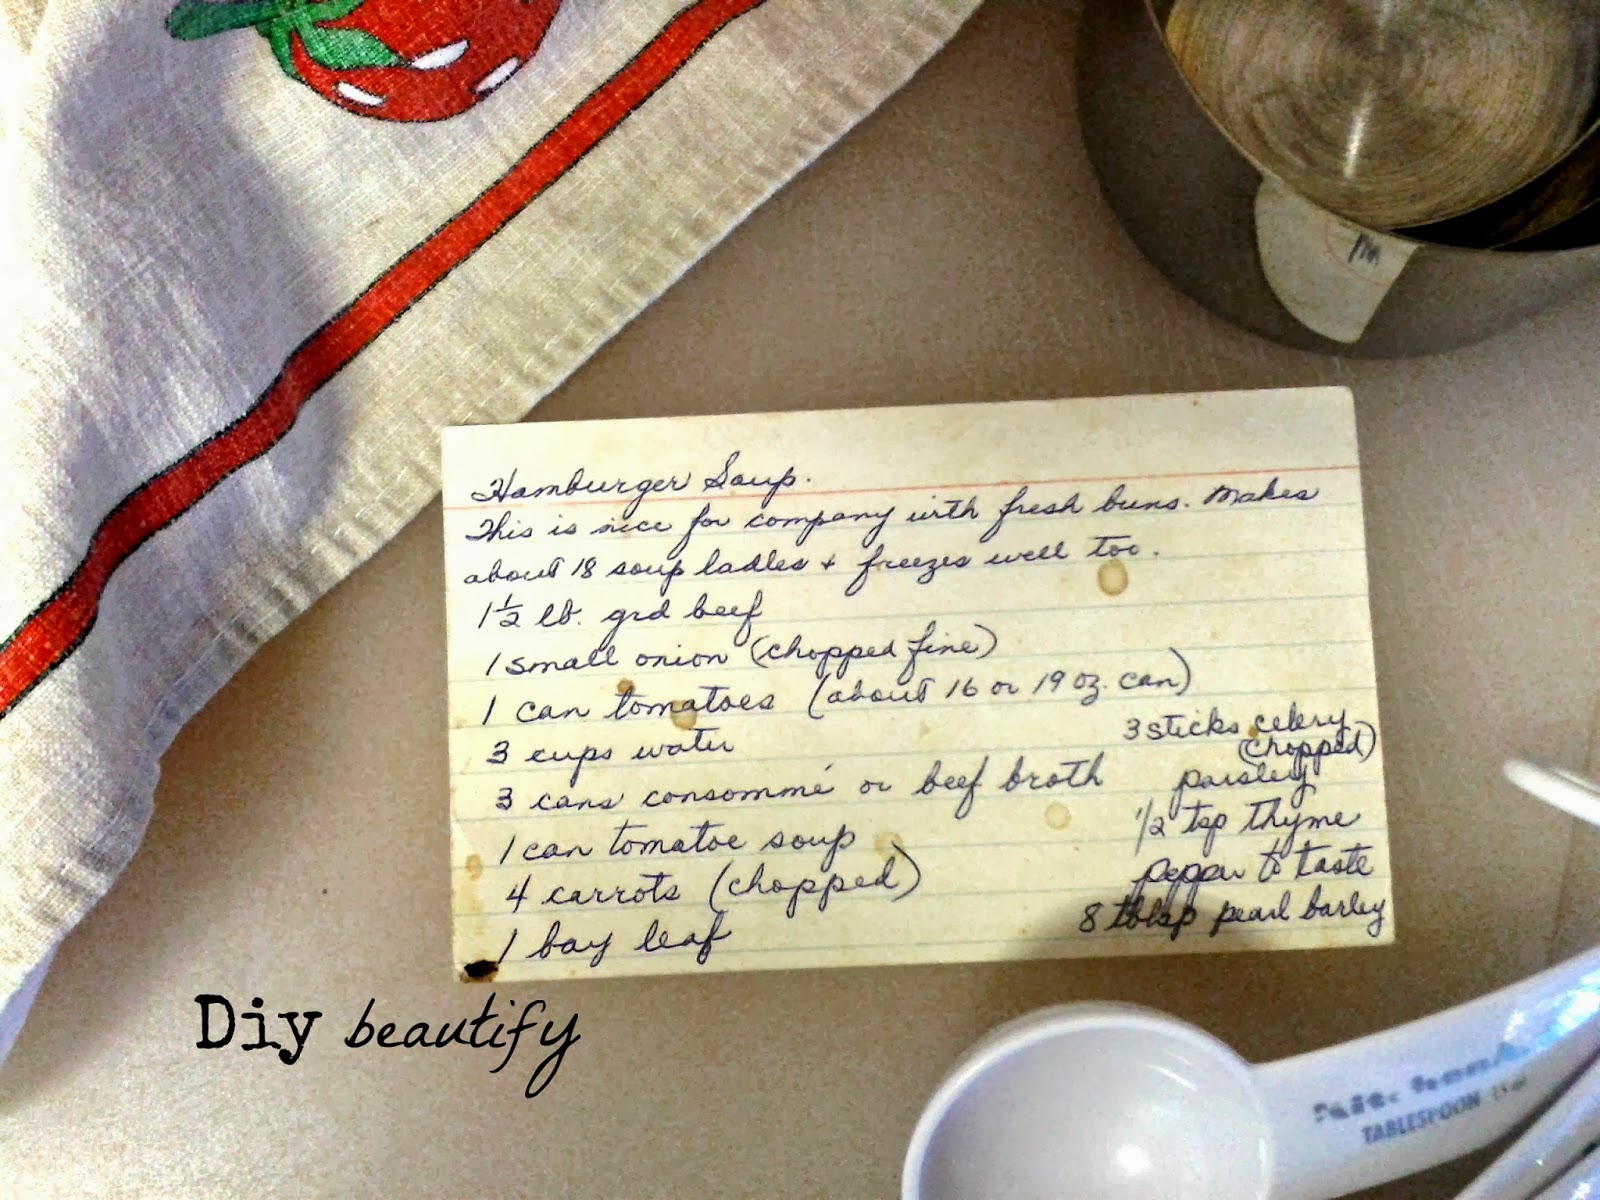 Hamburger Soup.
This is nice for company with fresh buns. Makes
about 18 soup ladles + freezes well too.
1½ lb. grd beef
1 small onion (chopped fine)
1 can tomatoes (about 16 or 19 oz. can)
3 cups water
3 cans consommé or beef broth
1 can tomatoe soup
4 carrots (chopped)
1 bay leaf
3 sticks celery
(chopped)
parsley
1/2 tsp thyme
pepper to taste
8 tblsp pearl barley
Diy beautify
TABLESPOON